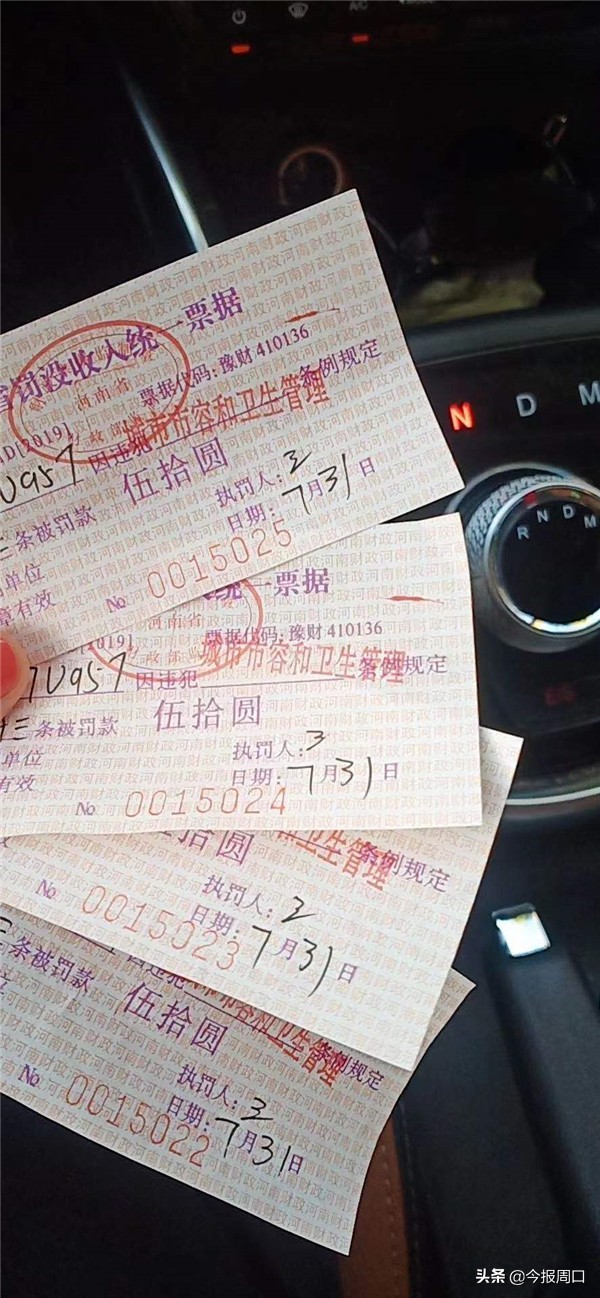 A/C
罚没收入统一票据
河南省
票据代码:豫财 410136
[2019]
U957 因违犯 城市市容和卫生管理 条例规定
条被罚款 伍拾圆
执罚人:3
单位
日期:7月31日
章有效
№ 0015025
统一票据
河南省
票据代码:豫财 410136
2019]
7U957 因违犯 城市市容和卫生管理 条例规定
十三条被罚款 伍拾圆
执罚人:3
单位
日期:7月31日
有效
№ 0015024
和卫生管理 条例规定
伍拾圆
执罚人:2
日期:7月31日
№ 0015023
三条被罚款 因违犯 市容和卫生管理 条例规定
伍拾圆
执罚人:2
日期:7月31日
№ 0015022
N D M
R N D M
头条 @今报周口